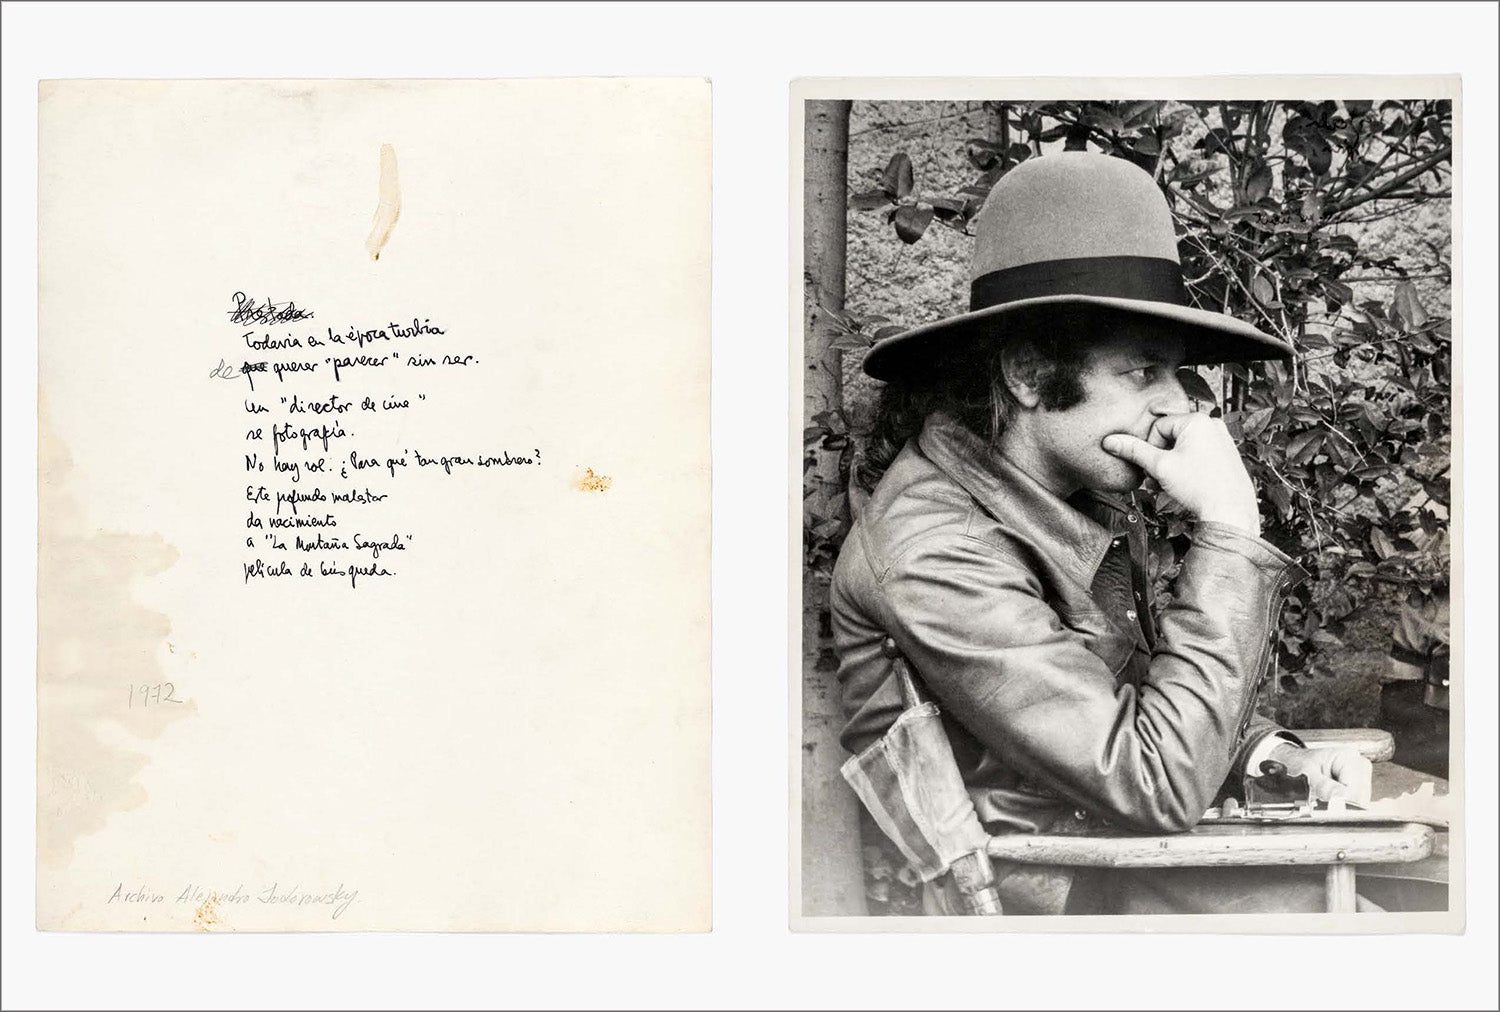 Todavía en la época turbia
de querer "parecer" sin ser.
Un "director de cine"
se fotografía.
No hay sol. ¿Para qué tan gran sombrero?
Este profundo malestar
da nacimiento
a "La Montaña Sagrada"
película de búsqueda.
1972
Archivo Alejandro Jodorowsky.